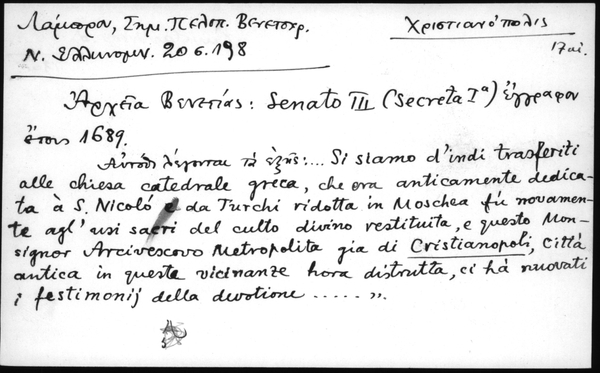 Λάμπρου, Σημ. Πελοπ. Βενετοκρ.
Χριστιανόπολις
Ν. Ἑλληνομν. 20 σ. 198
17 αἰ.
Ἀρχεῖα Βενετίας: Senato III (Secreta Iª) ἔγγραφον
ἔτους 1689.
Αὐτόθι λέγονται τὰ ἑξῆς:... Si siamo d'indi trasferiti
alle chiesa catedrale greca, che era anticamente dedica-
ta à S. Nicolò e da Turchi ridotta in Moschea fù novamen-
te agl' usi sacri del culto divino restituita, e questo Mon-
signor Arcivescovo Metropolita gia di Cristianopoli, Città
antica in queste vicinanze hora distrutta, ci hà
i festimonij della divotione ..... ".